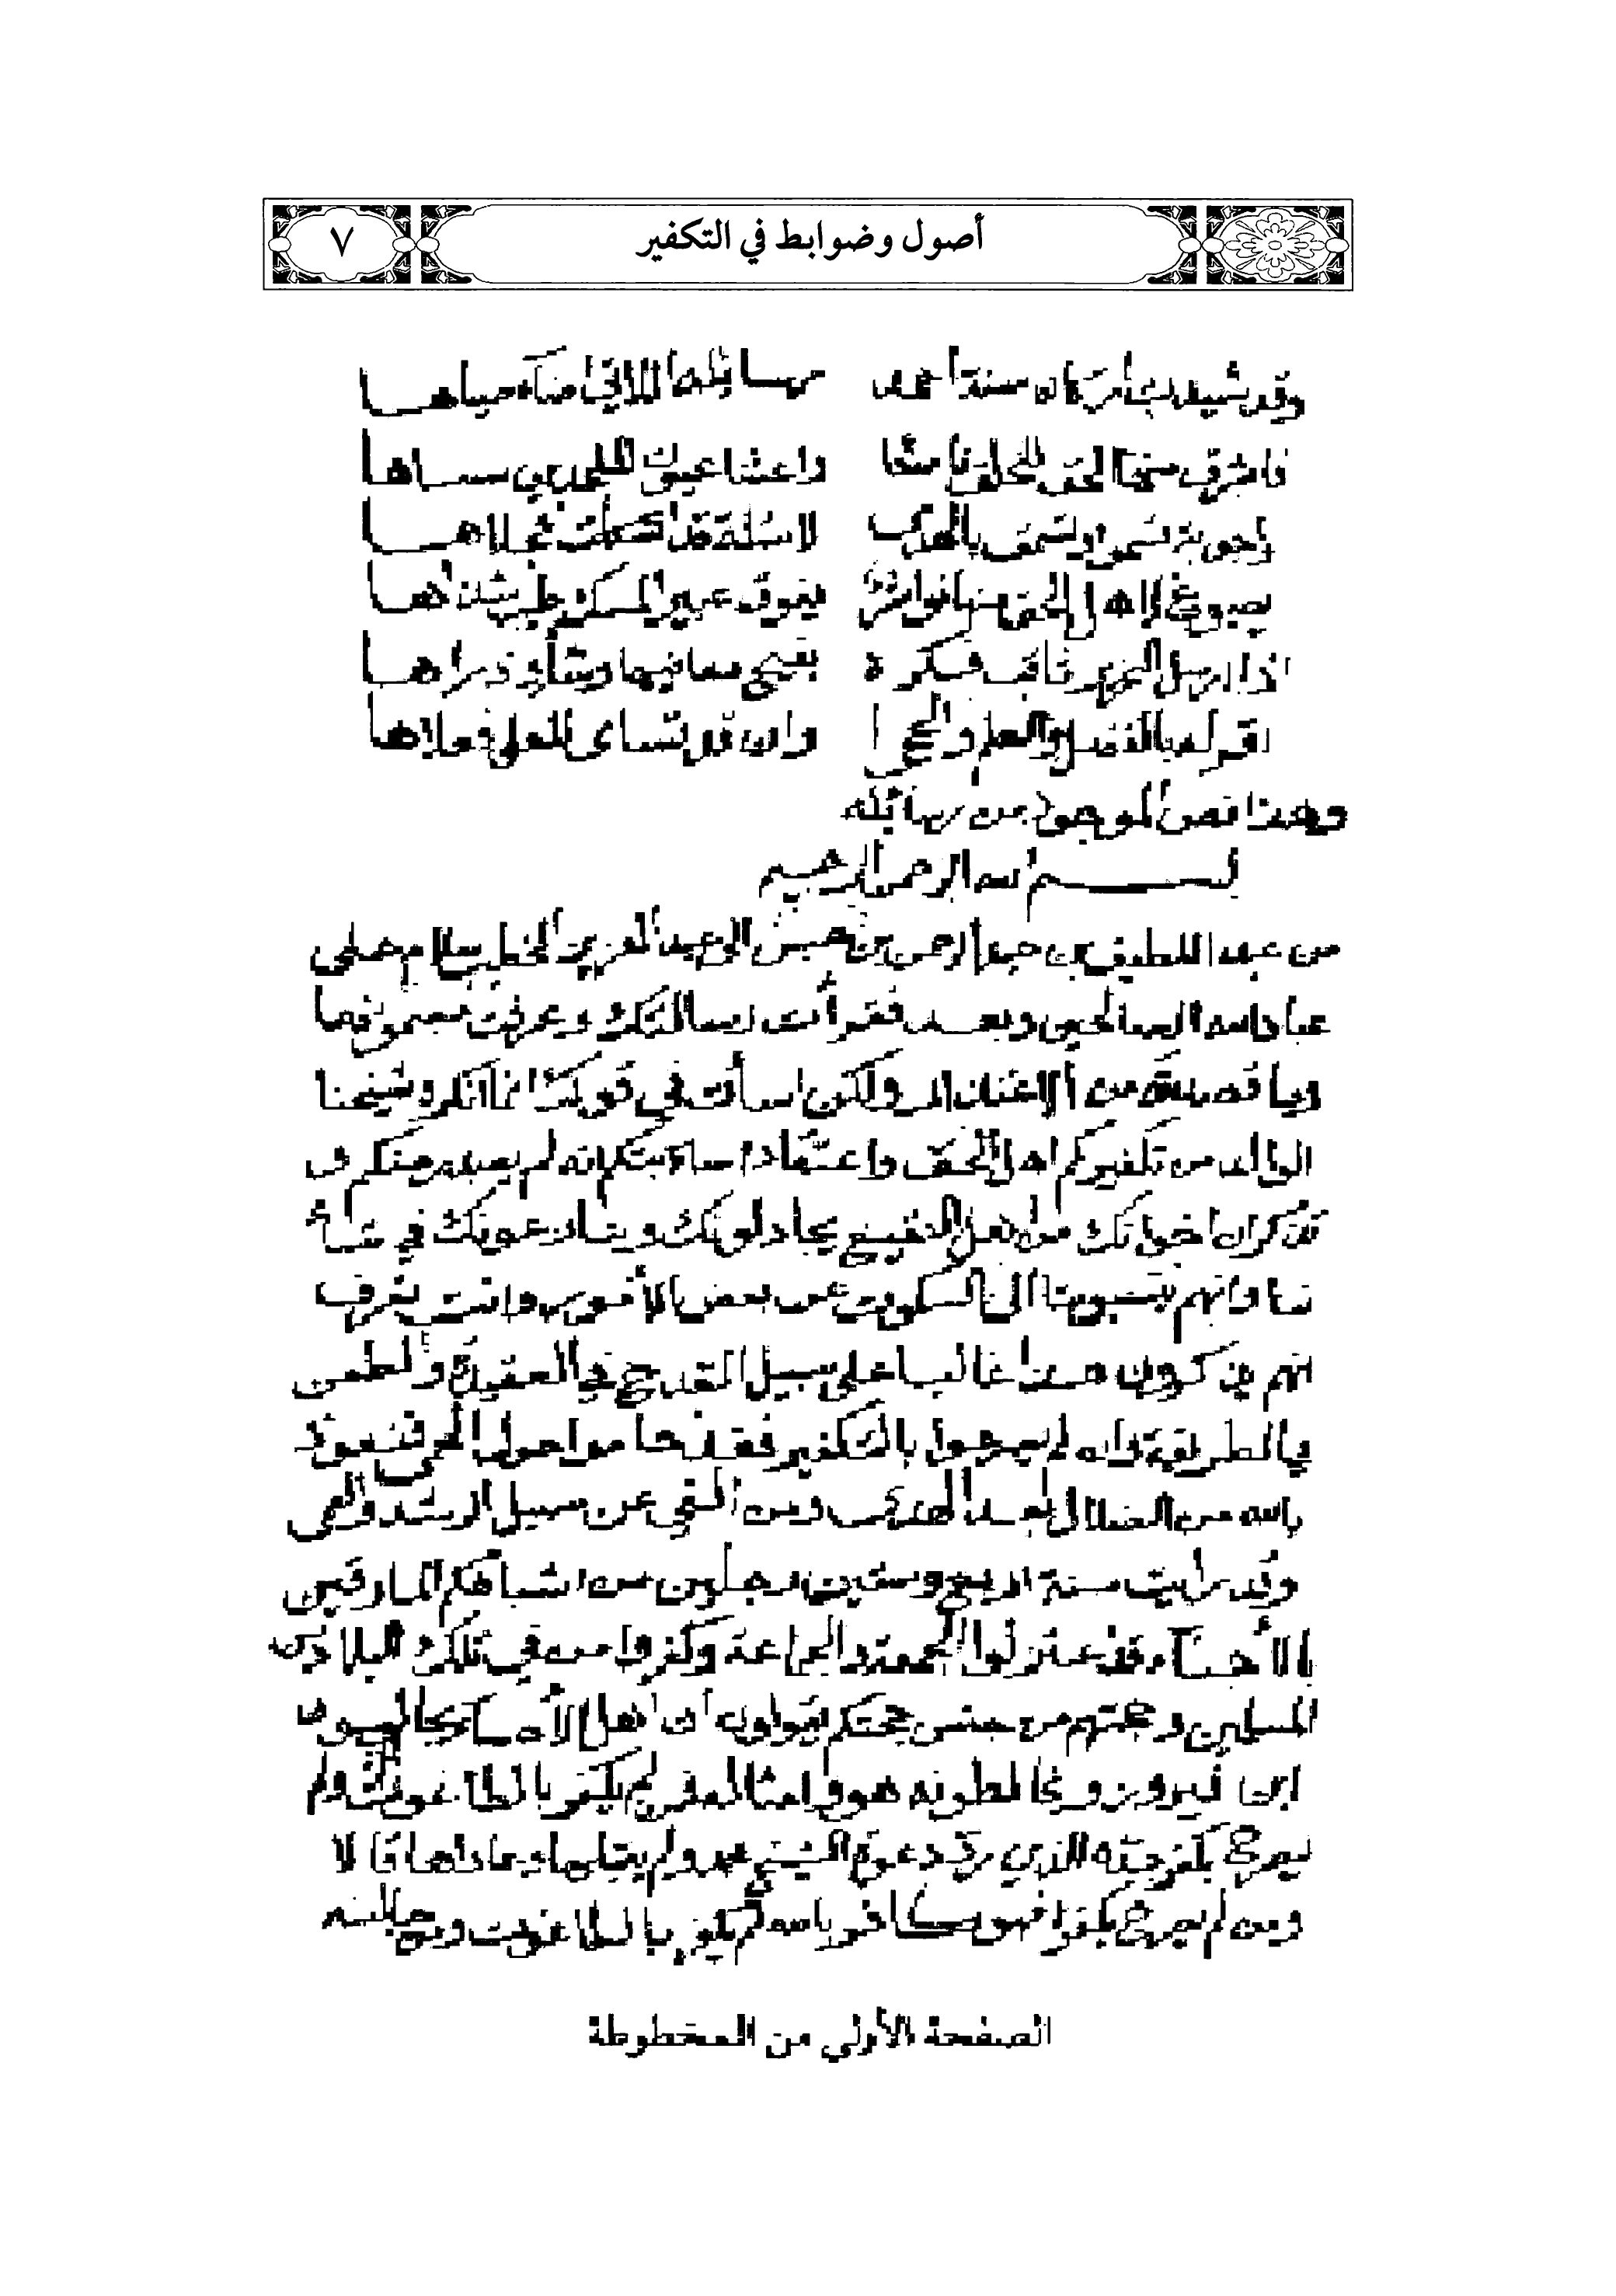 أصول وضوابط في التكفير
٧
وقد شيدت أركان سنة أحمد رسائله اللاتي أضاء ضياها
فأشرق منها الحق للخلق وأعشا عيون الملحدين سناها
وأجوبة تسمو وتسمق بالهدى لأسئلة قد
يضوع لأهل الحق منها يفوق عبير المسك طيب شذاها
إذا أرسل ثاقب فكره معانيها وشأو ذراها
أقر له بالفضل والعلم والحجى وإن قد تسامى للعلى فعلاها
وهذا نص الموجود من رسائله
بسم الله الرحمن الرحيم
من عبد اللطيف بن عبد الرحمن بن حسن الى عبد العزيز الخطيب سلام على
عباد الله الصالحين وبعد فقرأت رسالتك وعرفت مضمونها
وما قصدته من الاعتذار ولكن اسأت في قولك ان ما انكره شيخنا
الوالد من تكفيركم اهل الحق واعتقاد اصابتكم انه لم يصدر منكم
تذكر ان اخوانك من اهل النقيع يجادلونك وينازعونك في شأ
ننا وانهم ينسبوننا الى السكوت عن بعض الامور وانت تعرف
انهم يذكرون هذا غالبا على سبيل القدح في العقيدة والطعن
في الطريقة وان لم يصرحوا بالتكفير فقد حاموا حول الحمى فنعوذ
بالله من الضلال بعد الهدى ومن الغي عن سبيل الرشد والعمى
وقد رأيت سنة اربع وستين رجلين من اشباهكم المارقين
بالاحساء قد اعتزلوا الجمعة والجماعة وكفروا من في تلك البلاد من
المسلمين وحجتهم من جنس حجتكم يقولون ان اهل الاحساء يجالسون
ابن فيروز ويخالطونه هو وامثاله ممن لم يكفر بالطاغوت ولم
يصرح بكفر جده الذي رد دعوة الشيخ محمد ولم يقبلها وعاداها قالا
ومن لم يصرح بكفره فهو كافر بالله لم يكفر بالطاغوت ومن جالسه
الصفحة الأولى من المخطوطة